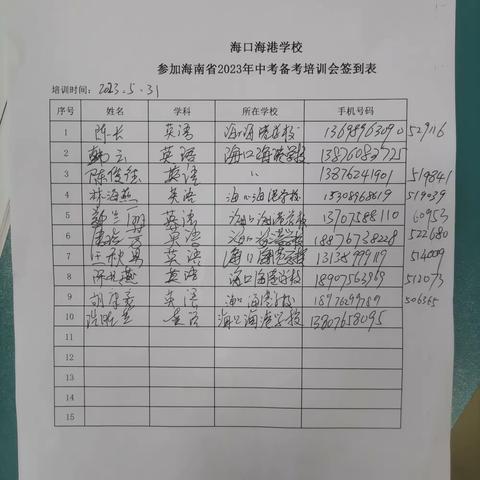 海口海港学校
参加海南省2023年中考备考培训会签到表
培训时间：2023.5.31
序号 姓名 学科 所在学校 手机号码
1 陈长 英语 海口海港学校 13698963090 529116
2 韩云 英语 海口海港学校 13876083725
3 英语 〃 13876241901 519841
4 林海燕 英语 海口海港学校 15308968619 519039
5 英语 海口海港学校 13707588110 60953
6 英语 海口海港学校 18876738228 522680
7 王秋男 英语 海口海港学校 514009
8 英语 海口海港学校 18907563969 512073
9 英语 海口海港学校 506365
10 英语 海口海港学校 13807658095
11
12
13
14
15